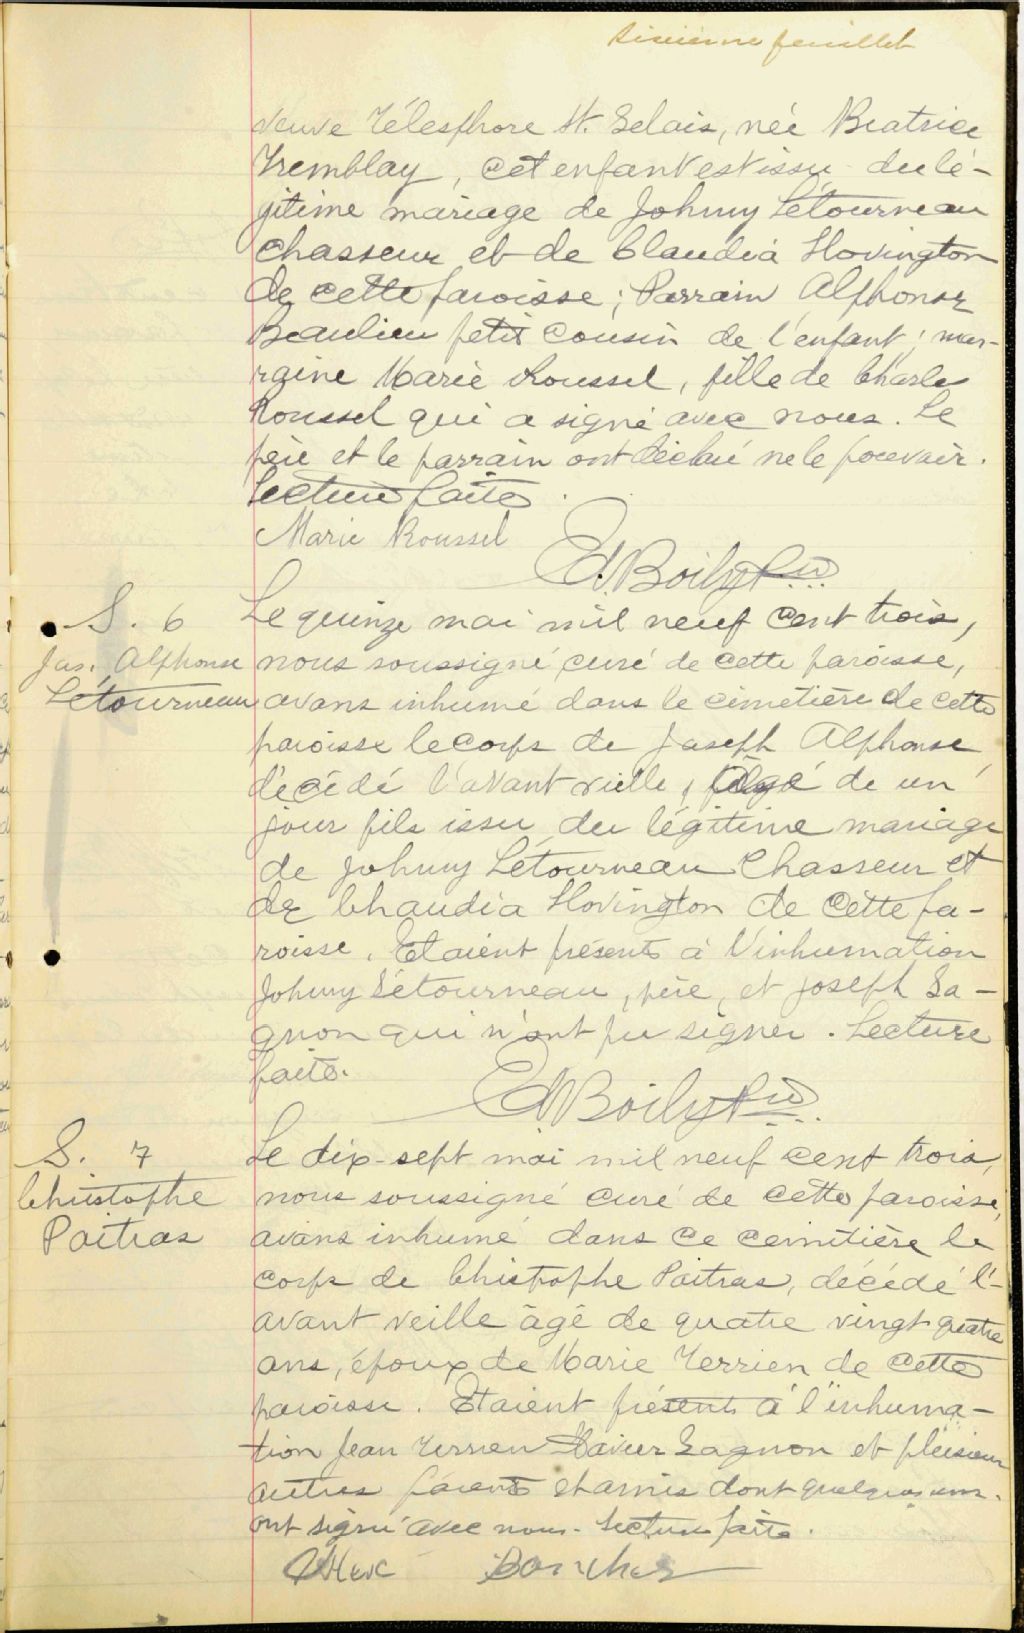 Sixième feuillet
veuve Télesphore St. Gelais, née Béatrice
Tremblay, cet enfant est issu du lé-
gitime mariage de Johnny Létourneau
chasseur et de Claudia Hovington
de cette paroisse; Parrain, Alphonse
Beaulieu petit cousin de l'enfant; mar-
raine Marie Roussel, fille de Charles
Roussel qui a signé avec nous. Le
père et le parrain ont déclaré ne le pouvoir.
Lecture faite.
Marie Roussel
Ed. Boily Ptre
S. 6
Jos. Alphonse
Létourneau
Le quinze mai mil neuf cent trois,
nous soussigné, curé de cette paroisse,
avons inhumé dans le cimetière de cette
paroisse le corps de Joseph Alphonse
décédé l'avant veille, âgé de un
jour fils issu du légitime mariage
de Johnny Létourneau Chasseur et
de Chaudia Hovington de cette pa-
roisse. Etaient présents à l'inhumation
Johnny Létourneau, père, et Joseph Ga-
gnon qui n'ont pu signer. Lecture
faite.
Ed Boily Ptre
S. 7
Christophe
Poitras
Le dix-sept mai mil neuf cent trois,
nous soussigné curé de cette paroisse,
avons inhumé dans ce cemitière le
corps de Christophe Poitras, décédé l'-
avant veille âgé de quatre vingt quatre
ans, époux de Marie Terrien de cette
paroisse. Etaient présents à l'inhuma-
tion Jean Terrien Xavier Gagnon et plusieurs
autres parents et amis dont quelques uns
ont signé avec nous. Lecture faite.
Boucher